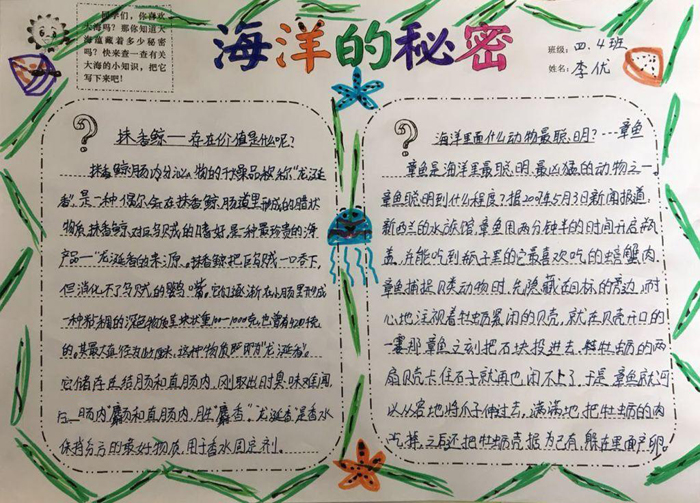 同学们，你喜欢
大海吗？那你知道大
海蕴藏着多少秘密
吗？快来查一查有关
大海的小知识，把它
写下来吧！
海洋的秘密
班级：四.4班
姓名：李优
抹香鲸——存在价值是什么呢？
抹香鲸肠内分泌物的干燥品被称“龙涎
香”。是一种偶尔会在抹香鲸肠道里形成的腊状
物质，抹香鲸对乌贼的嗜好，是一种最珍贵的海
产品—“龙涎香的来源。抹香鲸把乌贼一口吞下，
但消化不了乌贼的鹦嘴。它们逐渐在小肠里形成
一种粘稠的深色物质呈块状重100-1000克，也曾有420千克
的。其最大直径为165cm，这种物质即为“龙涎香”。
它储存在结肠和直肠内，刚取出时臭味难闻
后，肠内麝为和直肠内，胜“麝香”。龙涎香是香水
保持芬芳的最好物质，用于香水固定剂。
海洋里面什么动物最聪明？---章鱼
章鱼是海洋里最聪明，最凶猛的动物之一。
章鱼聪明到什么程度？据2003年5月3日新闻报道：
新西兰的水族馆，章鱼用两分钟半的时间开启瓶
盖，并能吃到瓶子里的它最喜欢吃的螃蟹肉。
章鱼捕捉贝类动物时，先隐藏在目标的旁边，耐
心地注视着牡蛎紧闭的贝壳，就在贝壳开口的
一霎那章鱼立刻把石块投进去，牡蛎的两
扇贝壳卡住石子就再也闭不上了，于是章鱼就可
以从容地将爪子伸过去，满满地把牡蛎的肉
吃掉，之后还把牡蛎壳据为己有，躲在里面产卵。